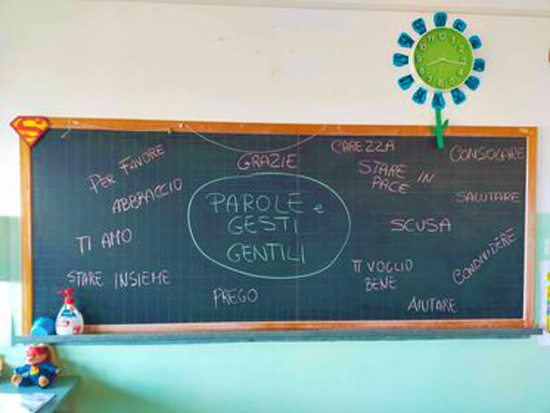 PER FAVORE
GRAZIE
CAREZZA
CONSOLARE
ABBRACCIO
STARE IN
PACE
SALUTARE
PAROLE e
GESTI
GENTILI
TI AMO
SCUSA
STARE INSIEME
TI VOGLIO
BENE
CONDIVIDERE
PREGO
AIUTARE